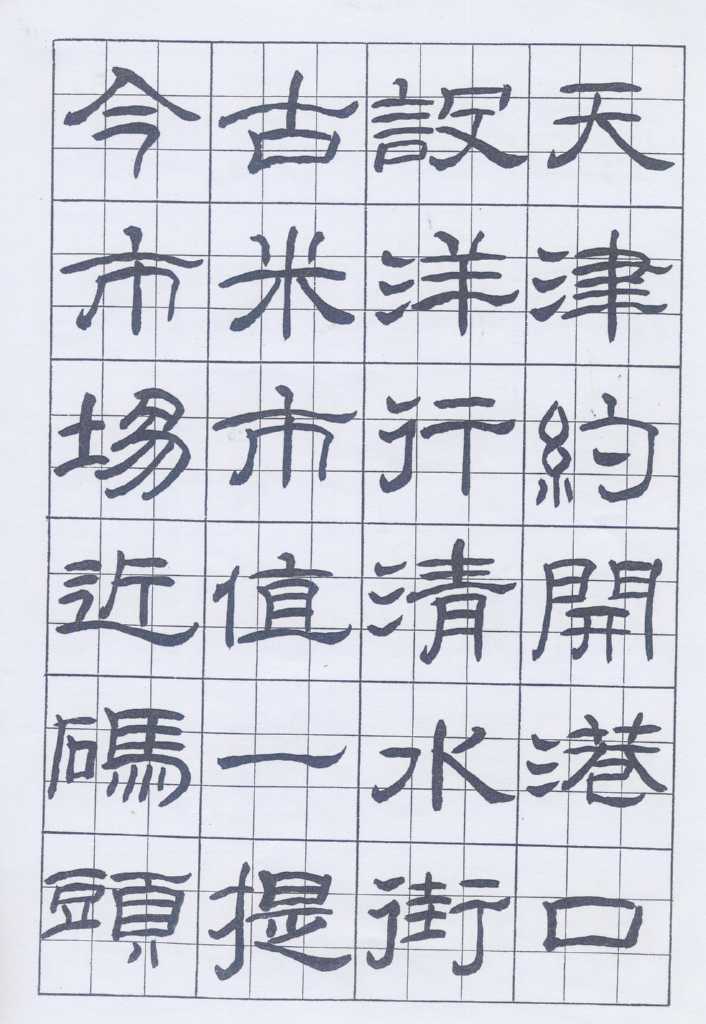 天津約開港口
設洋行清水街
古米市值一提
今市場近碼頭